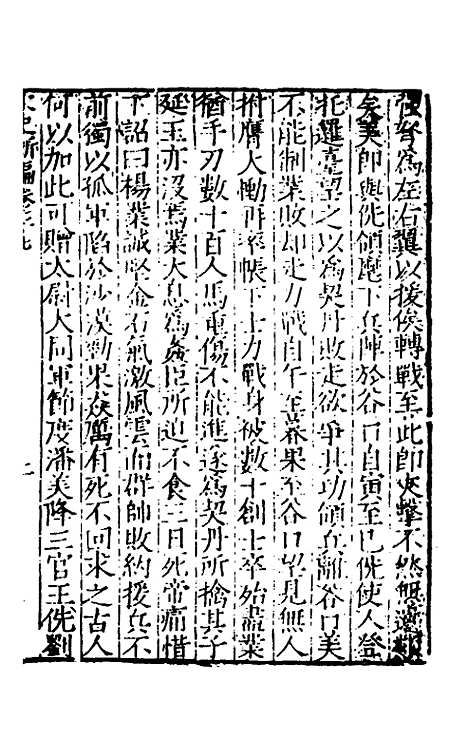 強弩爲左右翼以援俟轉戰至此卽夾擊不然無遺類
矣美卽與侁領麾下兵陣於谷口自寅至巳侁使人登
托邏臺望之以爲契丹敗走欲爭其功領兵離谷口美
不能制業敗却走力戰自午至暮果至谷口望見無人
拊膺大慟再率帳下士力戰身被數十創士卒殆盡業
猶手刃數十百人馬重傷不能進遂爲契丹所擒其子
延玉亦沒焉業大息爲姦臣所迫不食三日死帝痛惜
下詔曰楊業誠堅金石氣激風雲而群帥敗約援兵不
前獨以孤軍陷於沙漠勁果猋厲有死不回求之古人
何以加此可贈太尉大同軍節度潘美降三官王侁劉
史新編卷